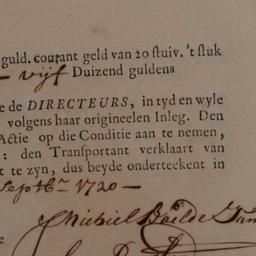 guld. courant geld van 20 stuiv. 't stuk
– vijf Duizend guldens
e de DIRECTEURS, in tyd en wyle
volgens haar origineelen Inleg. Den
Actie op die Conditie aan te nemen,
: den Transportant verklaart van
t te zyn, dus beyde onderteekent in
Septbr 1720 –
Michiel